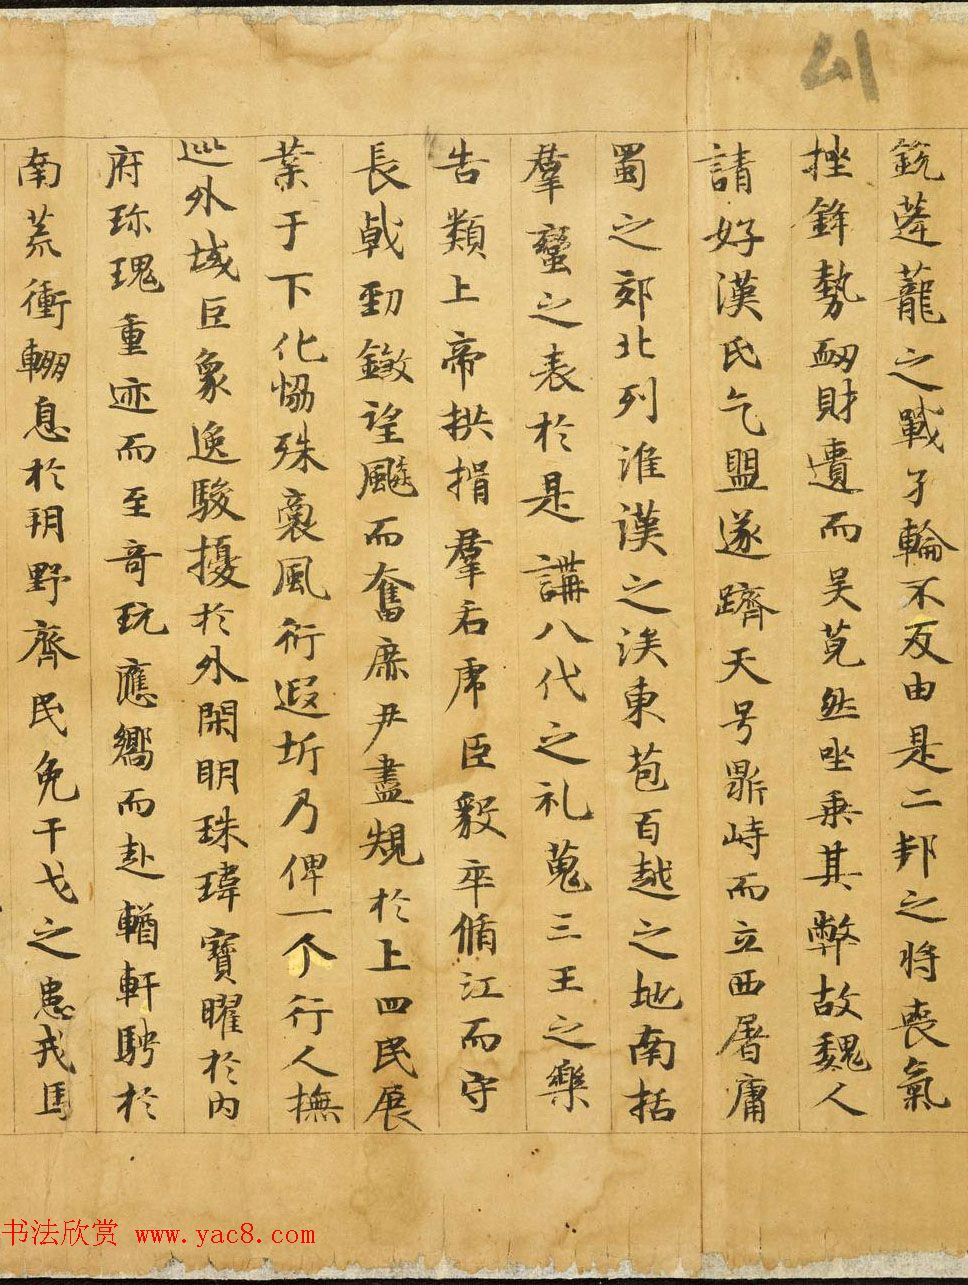 銳蓬蘢之戰孑輪不反由是二邦之將喪氣
挫鋒勢衂財遺而吴莞然坐乘其弊故魏人
請好漢氏乞盟遂躋天号鼎峙而立西屠庸
蜀之郊北列淮漢之涘東苞百越之地南括
羣蠻之表於是講八代之礼蒐三王之樂
告類上帝拱揖羣后虎臣毅卒脩江而守
長戟勁鎩望飈而奮庶尹盡䂓於上四民展
業于下化恊殊裔風衍遐圻乃俾一个行人撫
巡外域巨象逸駿擾於外閑明珠瑋寶曜於内
府珎瑰重迹而至奇玩應嚮而赴輶軒騁於
南荒衝輣息於朔野齊民免干戈之患戎馬
书法欣赏 www.yac8.com